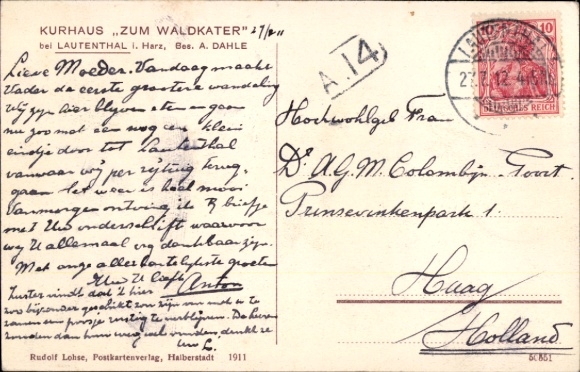 KURHAUS „ZUM WALDKATER"
bei LAUTENTHAL i. Harz, Bes. A. DAHLE
Lieve Moeder. Vandaag maakt
Vader de eerste grootere wandeling
Wij zijn hier blijven eten en gaan
nu zoo met een nog een klein
eindje door tot Lautenthal
vanwaar wij per rijtuig terug-
gaan. het weer is heel mooi
Vanmorgen ontving ik Uw briefje
met Uw onderschrift waarvoor
wij U allemaal erg dankbaar zijn.
Met onze allerhartelijkste groeten
Uw U liefh. Anton
Zuster vindt dat 't hier
zoo bijzonder geschikt zou zijn om met u te
zamen een poosje rustig te verblijven. De heeren
zouden dan hun weg wel vinden, denkt ze
Uw L.
A. 14
10
LAUTENTHAL
27.7.12. 4-5 N
DEUTSCHES REICH
Hochwohlgeb Frau
Dr A.G.M. Colombijn-Poort.
Prinsevinkenpark 1.
Haag
Holland
Rudolf Lohse, Postkartenverlag, Halberstadt 1911